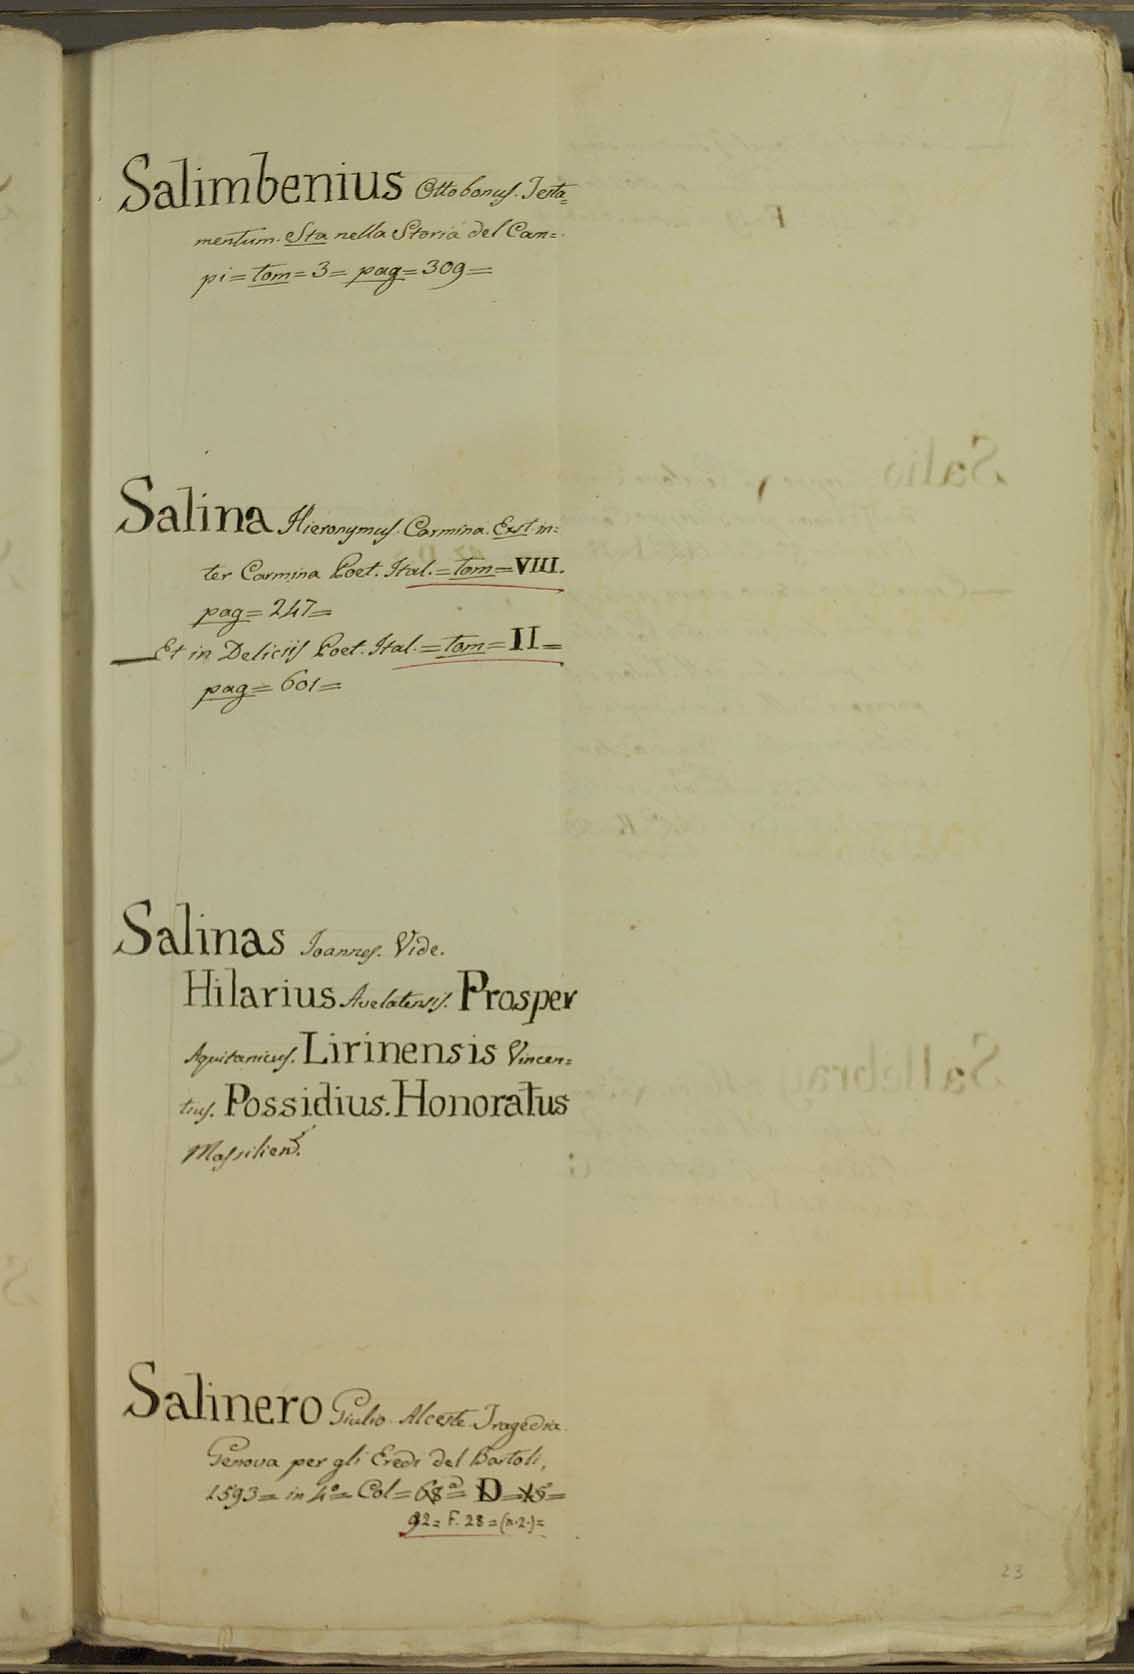 Salimbenius Ottobonus. Testa=
mentum. Sta nella Storia del Cam=
pi = tom = 3 = pag = 309 =
Salina Hieronymus. Carmina. Ext. in=
ter Carmina Poet. Ital. = tom = VIII.
pag = 247 =
— Et in Deliciis Poet. Ital. = tom = II =
pag = 601 =
Salinas Joannes. Vide.
Hilarius Arelatensis. Prosper
Aquitanicus. Lirinensis Vincen=
tius. Possidius. Honoratus
Massilien.
Salinero Giulio. Alceste Tragedia.
Genova per gli Eredi del Bartoli,
1593 = in 4° = Col = 68ª = D = 15 =
92 = F. 28 = (n. 2.) =
23